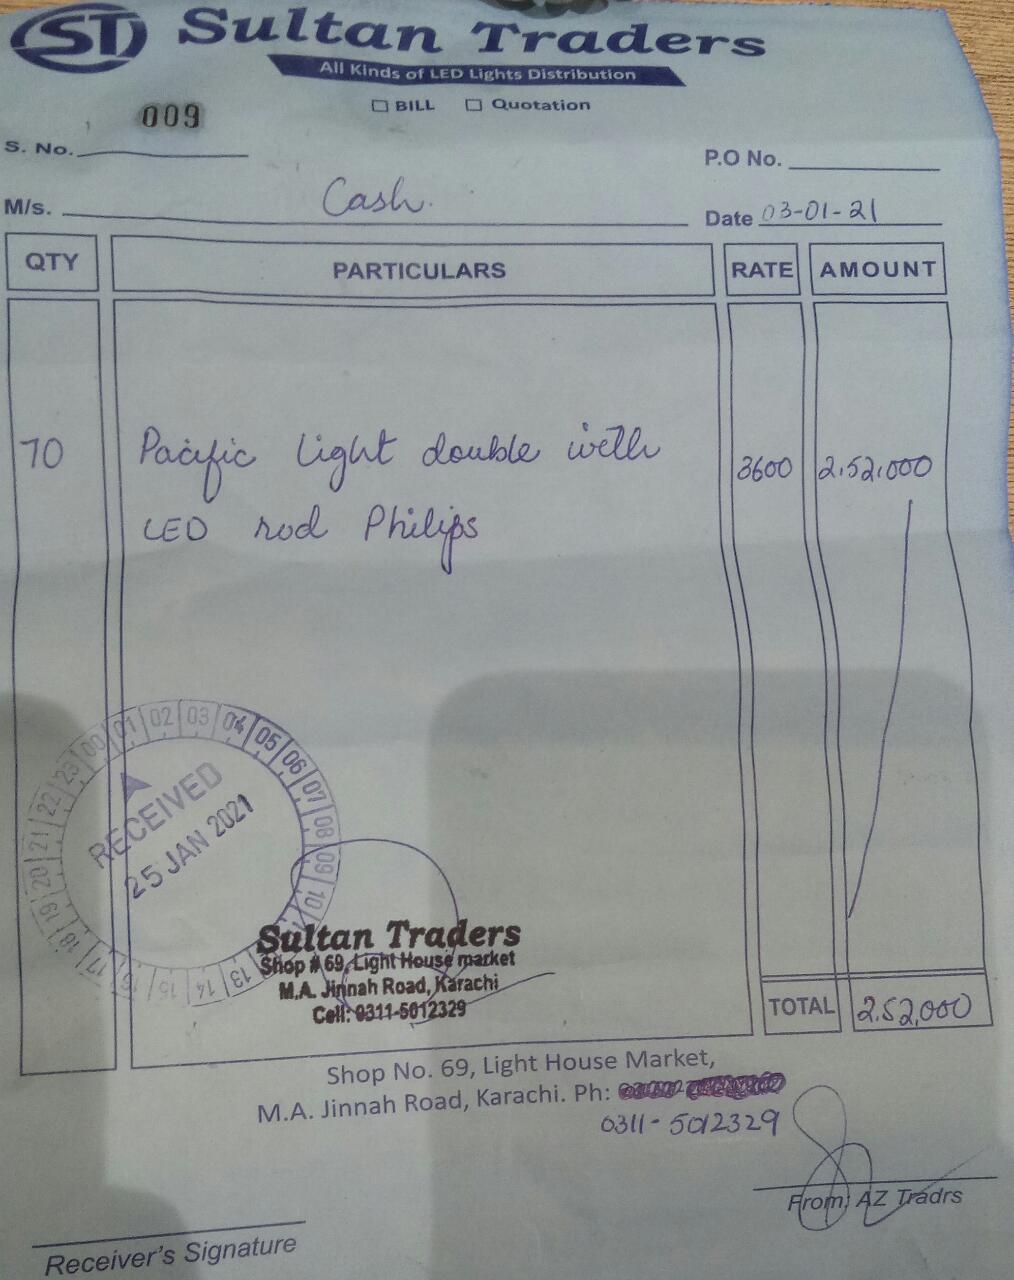 ST Sultan Traders
All Kinds of LED Lights Distribution
BILL Quotation
009
S. No.
P.O No.
M/s. Cash.
Date 03-01-21
QTY PARTICULARS RATE AMOUNT
70 Pacific light double with 3600 2,52,000
LED rod Philips
00 01 02 03 04 05 06 07 08 09 10 13 14 15 16 17 18 19 20 21 22 23
RECEIVED
25 JAN 2021
Sultan Traders
Shop # 69, Light House market
M.A. Jinnah Road, Karachi
Cell: 0311-5012329
TOTAL 2,52,000
Shop No. 69, Light House Market,
M.A. Jinnah Road, Karachi. Ph:
0311-5012329
From: AZ Tradrs
Receiver's Signature